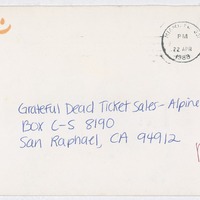 PM
22 APR
1988
Grateful Dead Ticket Sales - Alpine
Box C-S 8190
San Raphael, CA 94912